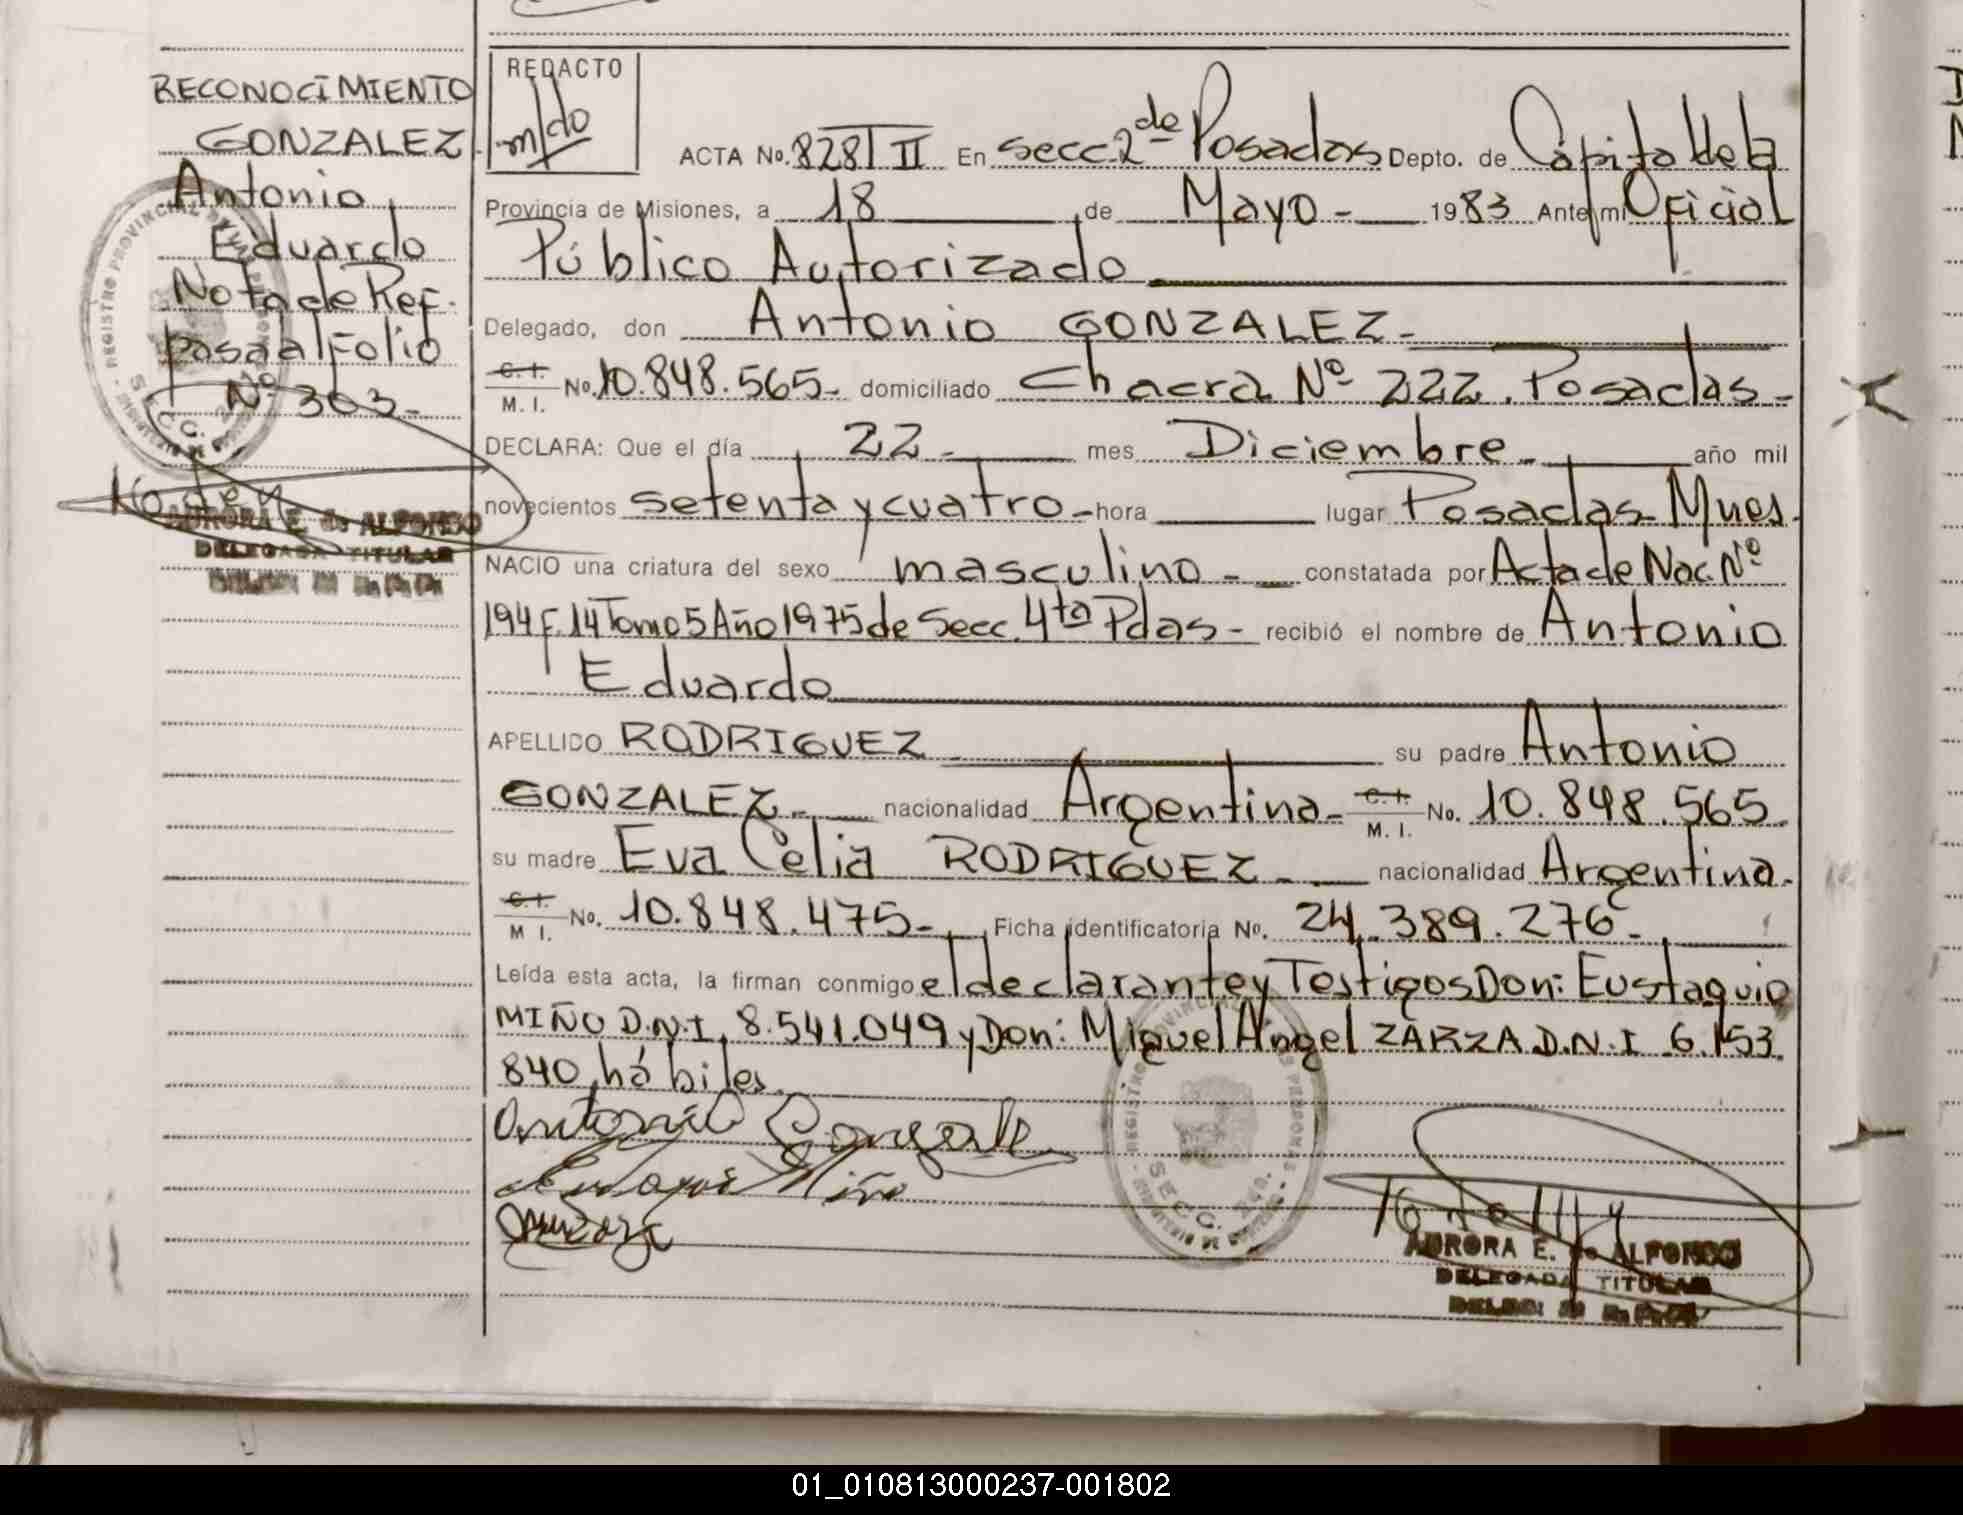 RECONOCIMIENTO
GONZALEZ
Antonio
Eduardo
Nota de Ref.
pasa al Folio
Nº 303-
AURORA E. de ALFONSO
DELEGADA TITULAR
REDACTO
m/do
ACTA No. 828 T II En secc. 2da Posadas Depto. de Capital de la
Provincia de Misiones, a 18 de Mayo - 1983 Ante mi Oficial
Público Autorizado
Delegado, don Antonio GONZALEZ-
C.I. M. I. No. 10.848.565- domiciliado Chacra Nº 222. Posadas-
DECLARA: Que el día 22- mes Diciembre- año mil
novecientos setenta y cuatro- hora lugar Posadas- Mnes.
NACIO una criatura del sexo masculino- constatada por Acta de Nac. Nº
194 F. 14 Tomo 5 Año 1975 de Secc. 4ta Pdas- recibió el nombre de Antonio
Eduardo
APELLIDO RODRIGUEZ su padre Antonio
GONZALEZ- nacionalidad Argentina- C.I. M. I. No. 10.848.565.
su madre Eva Celia RODRIGUEZ- nacionalidad Argentina.
C.I. M I. No. 10.848.475- Ficha identificatoria No. 24.389.276-
Leída esta acta, la firman conmigo el declarante y Testigos Don: Eustaquio
MIÑO D.N.I. 8.541.049 y Don: Miguel Angel ZARZA D.N.I 6.153.
840, hábiles.
Antonio Gonzale
Miño
REGISTRO PROVINCIAL DE LAS PERSONAS
SECC. 2da.
AURORA E. de ALFONSO
DELEGADA TITULAR
01_010813000237-001802